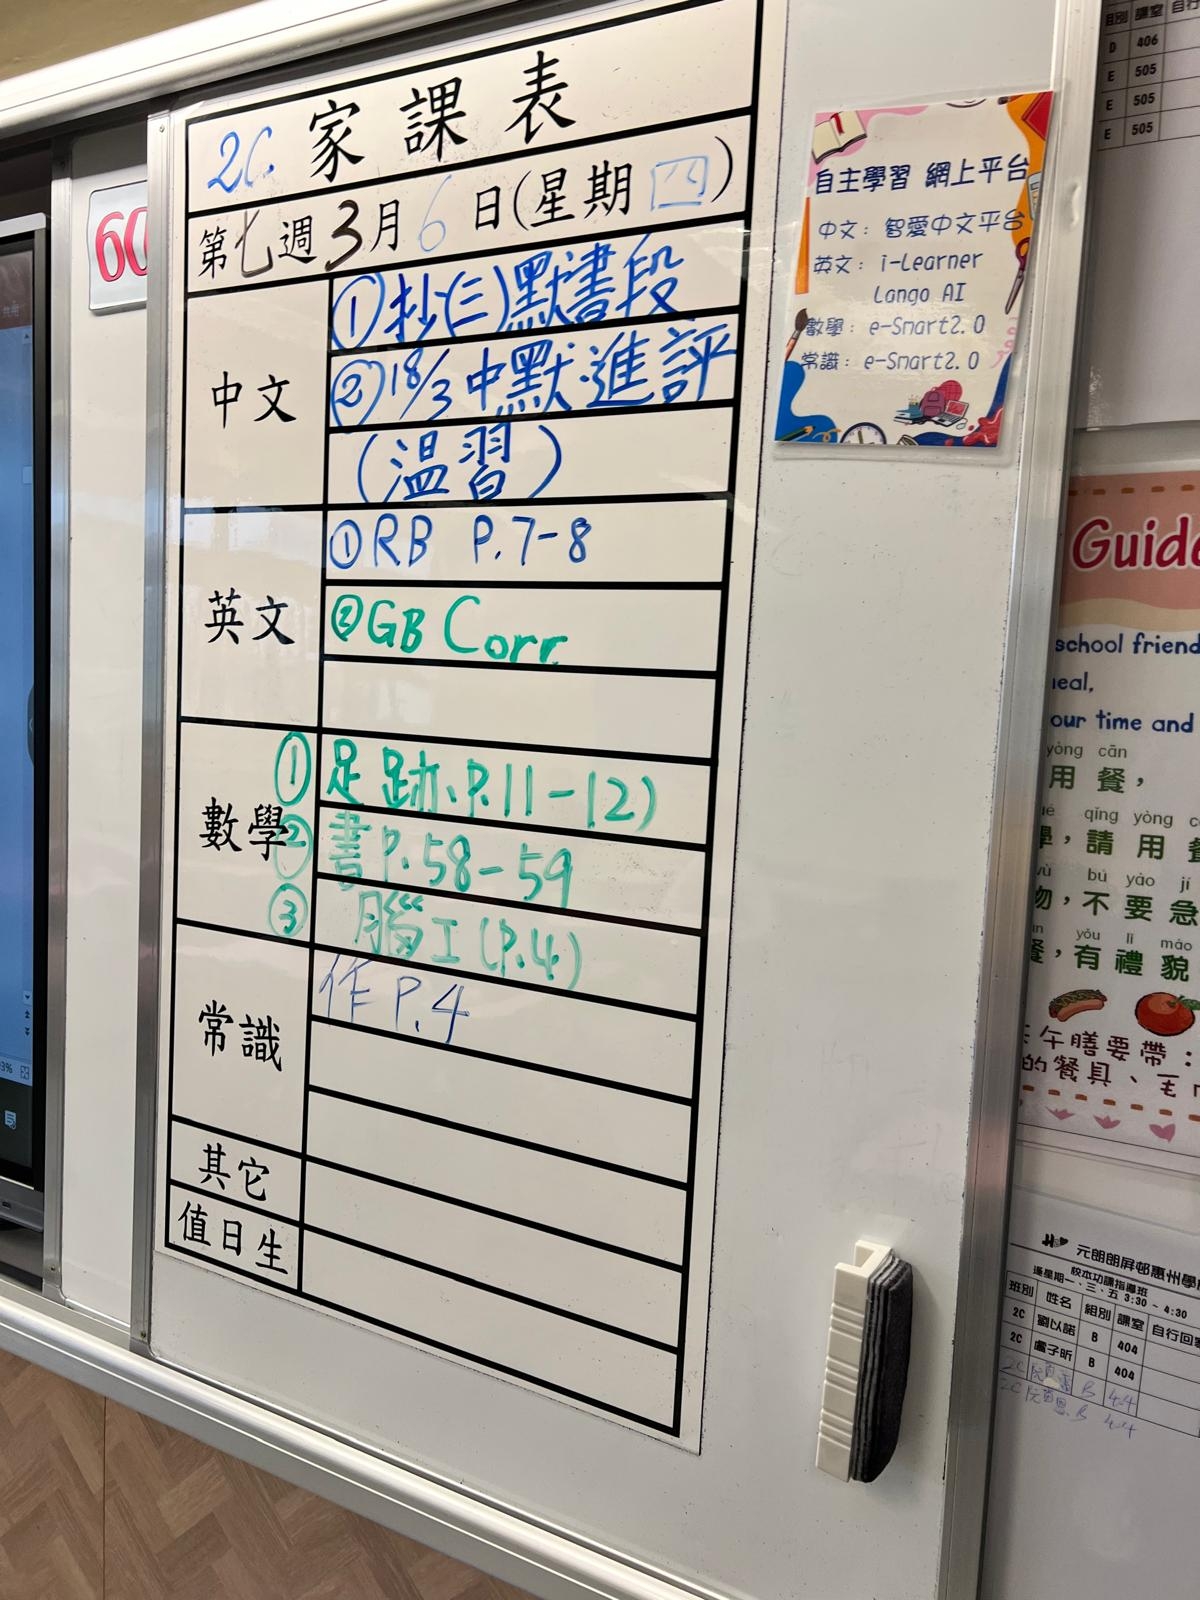 2C. 家課表
第七週3月6日(星期四)
中文
①抄(三)默書段
②18/3中默.進評
(溫習)
英文
①RB P.7-8
②GB Corr.
數學
①足跡、P.11-12)
②書P.58-59
③腦工(P.4)
常識
作P.4
其它
值日生
60
自主學習 網上平台
中文：智愛中文平台
英文：i-Learner
Lango AI
數學：e-Smart2.0
常識：e-Smart2.0
組別 課室 自行
D 406
E 505
E 505
E 505
Guide
school friend
neal,
our time and
yòng cān
用餐，
qǐng yòng
請用
bú yào jí
物，不要急
yǒu lǐ mào
餐，有禮貌
午膳要帶：
的餐具、毛巾
元朗朗屏邨惠州學
校本功課指導班
逢星期一、三、五 3:30 - 4:30
班別 姓名 組別 課室 自行回家
2C 劉以諾 B 404
2C 盧子昕 B 404
2C B 404
2C B 404